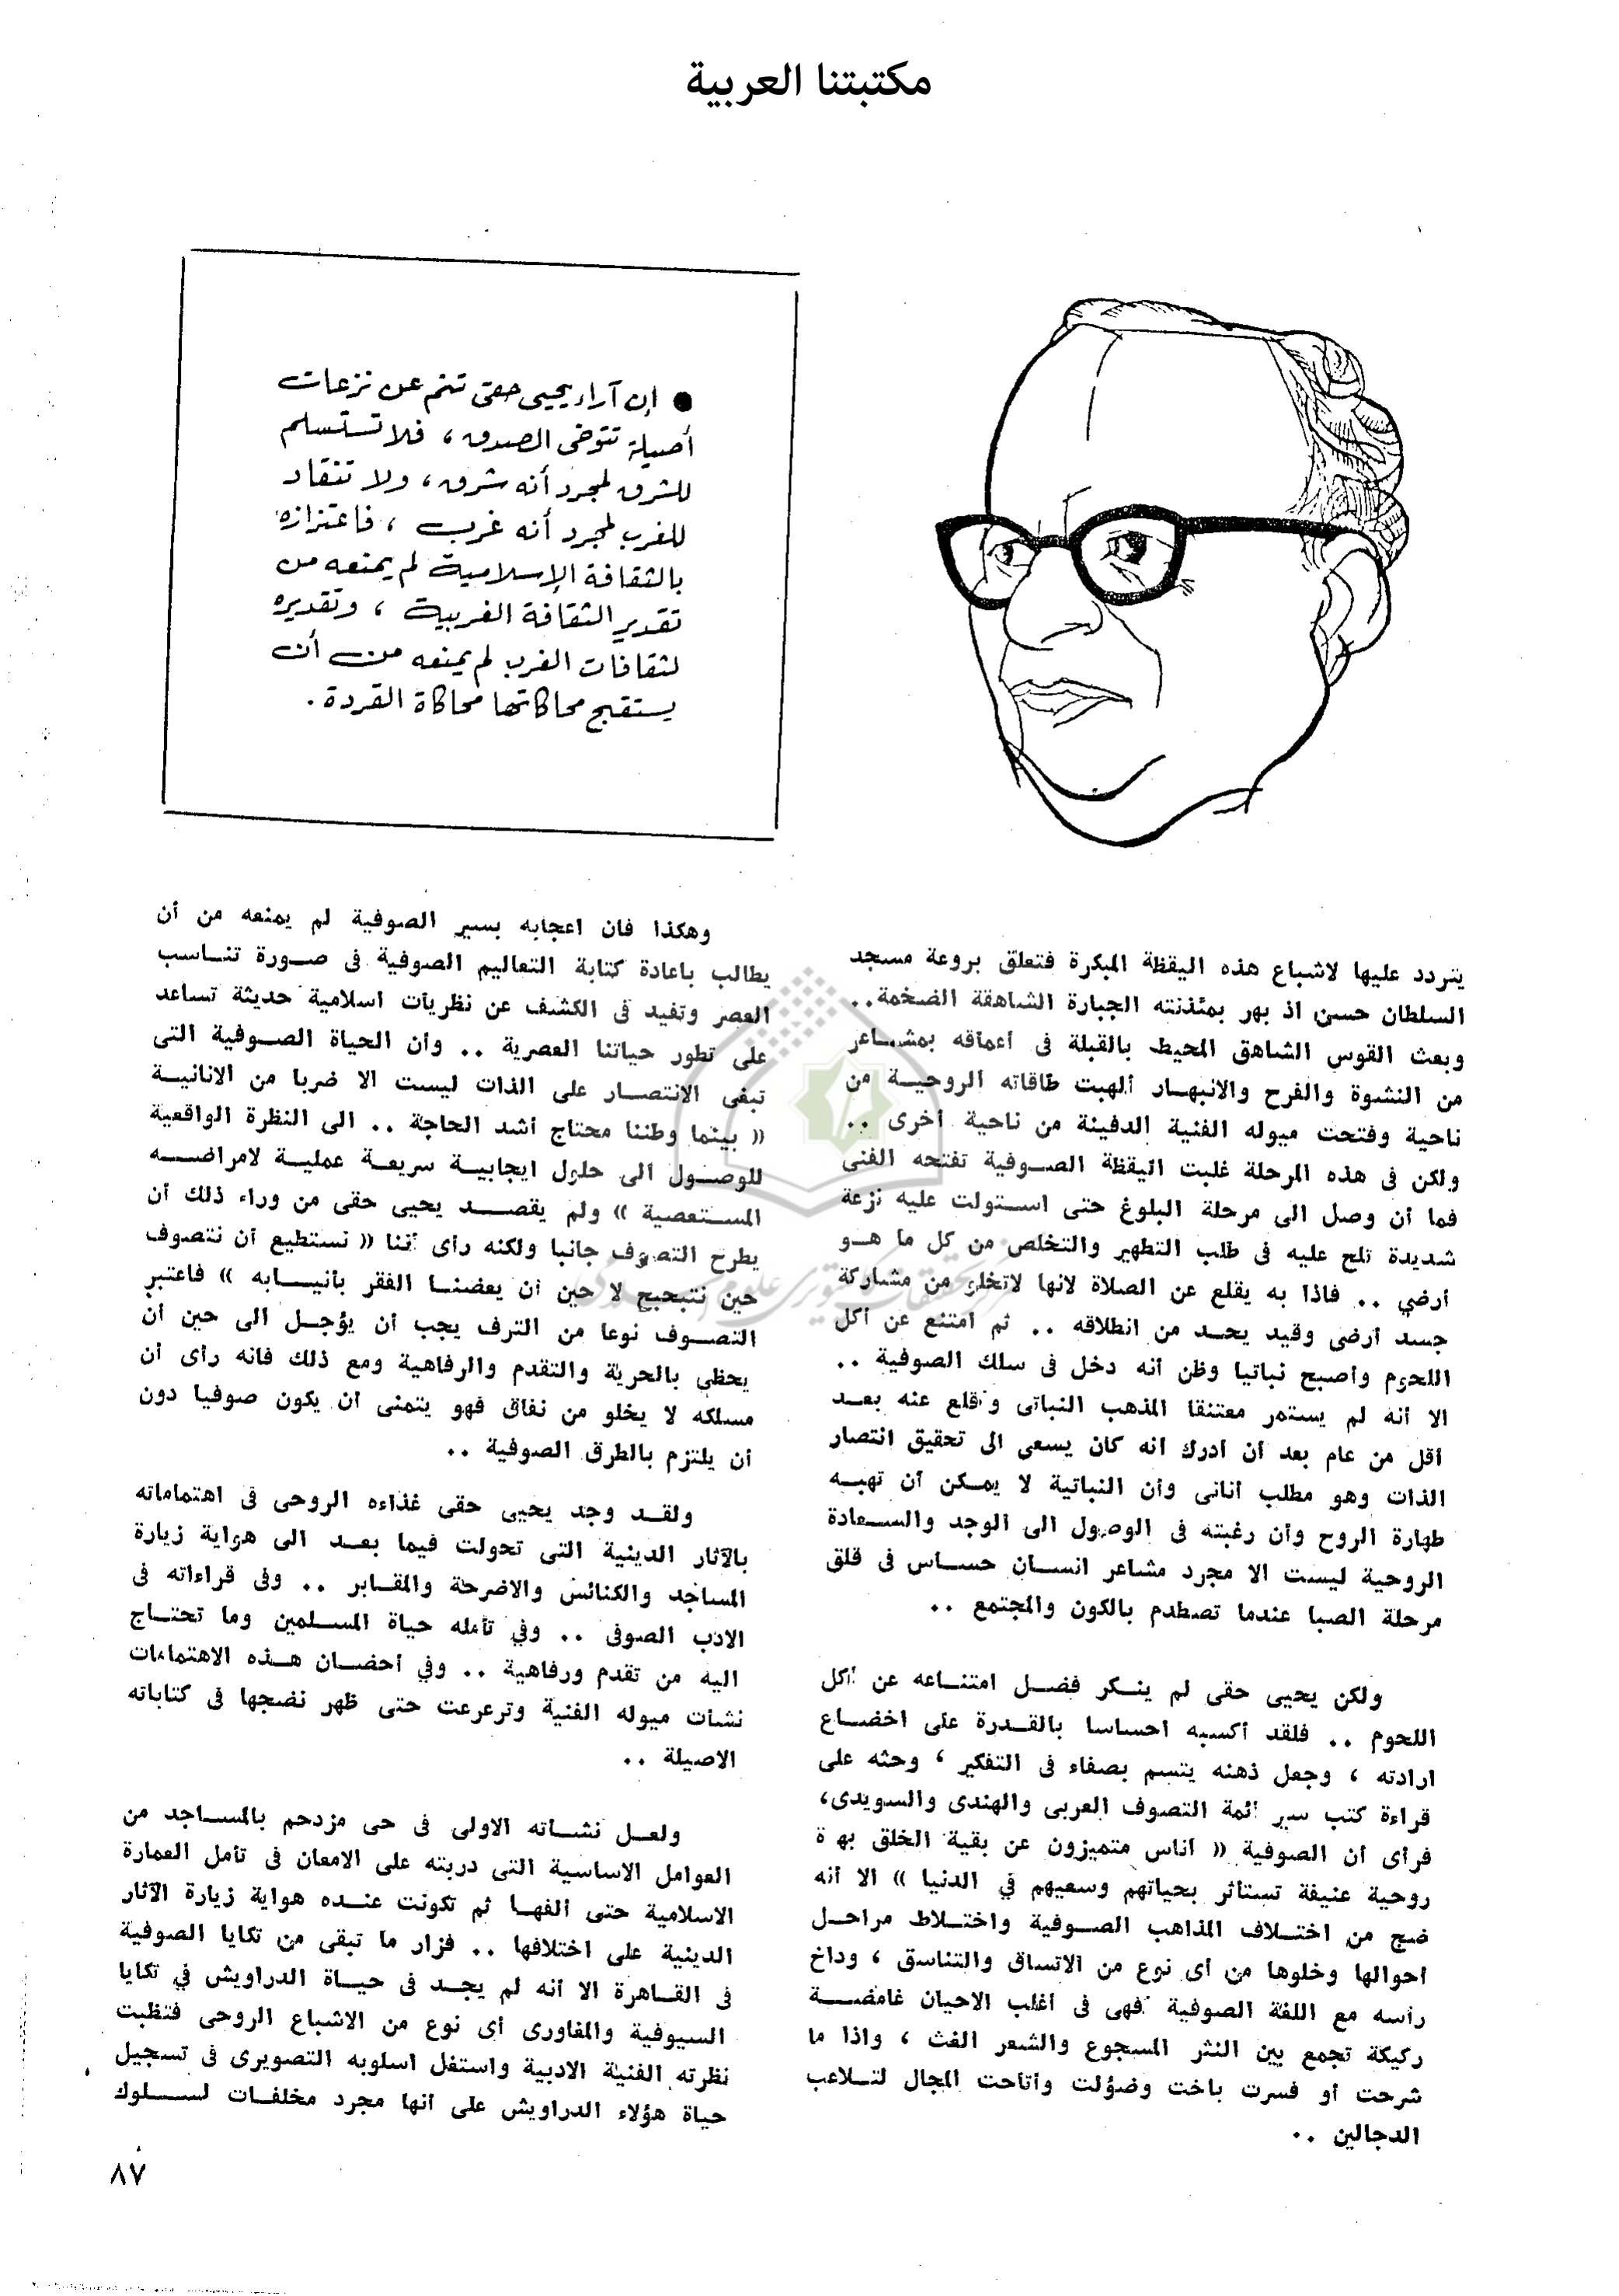 مكتبتنا العربية
● إن آراء يحيى حقى تنم عن نزعات
أصيلة تتوخى الصدق ، فلا تستسلم
للشرق لمجرد أنه شرق ، ولا تنقاد
للغرب لمجرد أنه غرب ، فاعتزازه
بالثقافة الإسلامية لم يمنعه من
تقدير الثقافة الغربية ، وتقديره
لثقافات الغرب لم يمنعه من أن
يستقبح محاكاتها محاكاة القردة .
يتردد عليها لاشباع هذه اليقظة المبكرة فتعلق بروعة مسجد
السلطان حسن اذ بهر بمئذنته الجبارة الشاهقة الضخمة ..
وبعث القوس الشاهق المحيط بالقبلة فى أعماقه بمشاعر
من النشوة والفرح والانبهار ألهبت طاقاته الروحية من
ناحية وفتحت ميوله الفنية الدفينة من ناحية أخرى ..
ولكن فى هذه المرحلة غلبت اليقظة الصوفية تفتحه الفنى
فما أن وصل الى مرحلة البلوغ حتى استولت عليه نزعة
شديدة تلح عليه فى طلب التطهير والتخلص من كل ما هو
أرضي .. فاذا به يقلع عن الصلاة لانها لاتخلو من مشاركة
جسد أرضى وقيد يحد من انطلاقه .. ثم امتنع عن أكل
اللحوم وأصبح نباتيا وظن أنه دخل فى سلك الصوفية ..
الا أنه لم يستمر معتنقا المذهب النباتى وأقلع عنه بعد
أقل من عام بعد أن أدرك أنه كان يسعى الى تحقيق انتصار
الذات وهو مطلب أنانى وأن النباتية لا يمكن أن تهبه
طهارة الروح وأن رغبته فى الوصول الى الوجد والسعادة
الروحية ليست الا مجرد مشاعر انسان حساس فى قلق
مرحلة الصبا عندما تصطدم بالكون والمجتمع ..
ولكن يحيى حقى لم ينكر فضل امتناعه عن أكل
اللحوم .. فلقد أكسبه احساسا بالقدرة على اخضاع
ارادته ، وجعل ذهنه يتسم بصفاء فى التفكير ، وحثه على
قراءة كتب سير أئمة التصوف العربى والهندى والسويدى،
فرأى أن الصوفية « أناس متميزون عن بقية الخلق بهزة
روحية عنيفة تستأثر بحياتهم وسعيهم في الدنيا » الا أنه
ضج من اختلاف المذاهب الصوفية واختلاط مراحل
احوالها وخلوها من أى نوع من الاتساق والتناسق ، وداخ
رأسه مع اللغة الصوفية فهى فى أغلب الاحيان غامضة
ركيكة تجمع بين النثر المسجوع والشعر الغث ، واذا ما
شرحت أو فسرت باخت وضؤلت وأتاحت المجال لتلاعب
الدجالين ..
وهكذا فان اعجابه بسير الصوفية لم يمنعه من أن
يطالب باعادة كتابة التعاليم الصوفية فى صورة تناسب
العصر وتفيد فى الكشف عن نظريات اسلامية حديثة تساعد
على تطور حياتنا العصرية .. وأن الحياة الصوفية التى
تبغى الانتصار على الذات ليست الا ضربا من الانانية
« بينما وطننا محتاج أشد الحاجة .. الى النظرة الواقعية
للوصول الى حلول ايجابية سريعة عملية لامراضه
المستعصية » ولم يقصد يحيى حقى من وراء ذلك أن
يطرح التصوف جانبا ولكنه رأى أننا « نستطيع أن نتصوف
حين نتبحبح لا حين أن يعضنا الفقر بأنيابه » فاعتبر
التصوف نوعا من الترف يجب أن يؤجل الى حين أن
يحظى بالحرية والتقدم والرفاهية ومع ذلك فانه رأى أن
مسلكه لا يخلو من نفاق فهو يتمنى أن يكون صوفيا دون
أن يلتزم بالطرق الصوفية ..
ولقد وجد يحيى حقى غذاءه الروحى فى اهتماماته
بالآثار الدينية التى تحولت فيما بعد الى هواية زيارة
المساجد والكنائس والاضرحة والمقابر .. وفى قراءاته فى
الادب الصوفى .. وفي تأمله حياة المسلمين وما تحتاج
اليه من تقدم ورفاهية .. وفي أحضان هذه الاهتمامات
نشأت ميوله الفنية وترعرعت حتى ظهر نضجها فى كتاباته
الاصيلة ..
ولعل نشأته الاولى فى حى مزدحم بالمساجد من
العوامل الاساسية التى دربته على الامعان فى تأمل العمارة
الاسلامية حتى الفها ثم تكونت عنده هواية زيارة الآثار
الدينية على اختلافها .. فزار ما تبقى من تكايا الصوفية
فى القاهرة الا أنه لم يجد فى حياة الدراويش في تكايا
السيوفية والمغاورى أى نوع من الاشباع الروحى فتظبت
نظرته الفنية الادبية واستغل اسلوبه التصويرى فى تسجيل
حياة هؤلاء الدراويش على أنها مجرد مخلفات لسلوك
٨٧